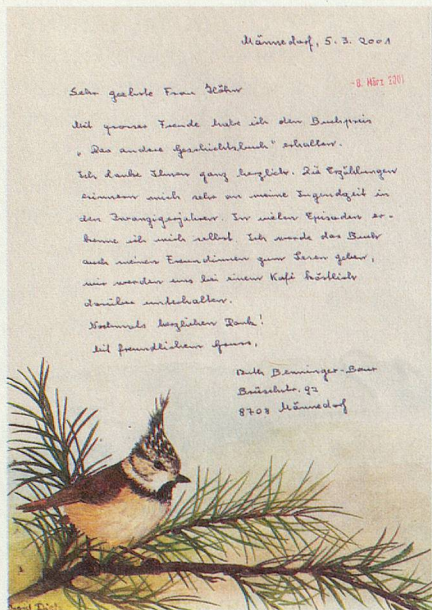 Männedorf, 5. 3. 2001
-8. März 2001
Sehr geehrte Frau Höhn
Mit grosser Freude habe ich den Buchpreis
„Das andere Geschichtsbuch" erhalten.
Ich danke Ihnen ganz herzlich. Die Erzählungen
erinnern mich sehr an meine Jugendzeit in
den Zwanzigerjahren. In vielen Episoden er-
kenne ich mich selbst. Ich werde das Buch
auch meinen Freundinnen zum Lesen geben,
wir werden uns bei einem Kafi köstlich
darüber unterhalten.
Nochmals herzlichen Dank!
Mit freundlichem Gruss,
Ruth Benninger-Baur
92
8708 Männedorf